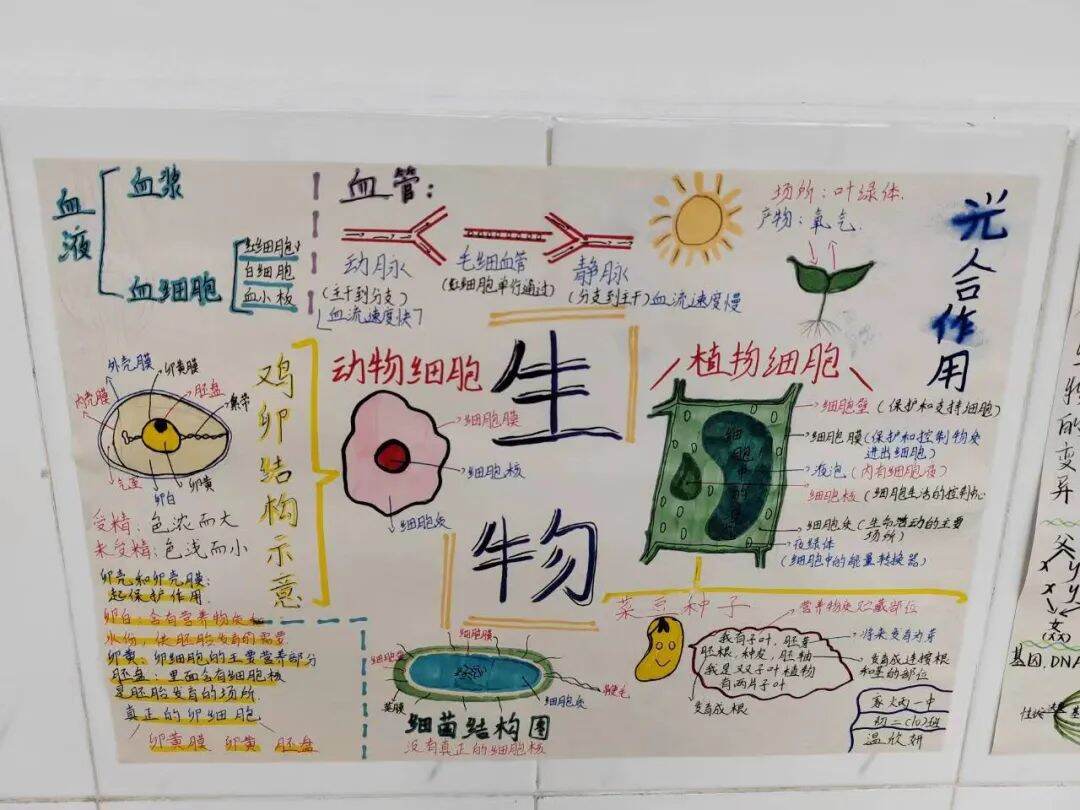 血液
血浆
血细胞
红细胞
白细胞
血小板
血管：
动脉
（主干到分支）
血流速度快
毛细血管
（红细胞单行通过）
静脉
（分支到主干）血流速度慢
场所：叶绿体.
产物：氧气.
光合作用
外壳膜
卵黄膜
内壳膜
胚盘
系带
气室
卵白
卵黄
鸡卵结构示意
受精：色浓而大
未受精：色浅而小
卵壳和卵壳膜：
起保护作用.
卵白：含有营养物质和
水份，供胚胎发育的需要
卵黄：卵细胞的主要营养部分
胚盘：里面含有细胞核
是胚胎发育的场所
真正的卵细胞
卵黄膜 卵黄 胚盘
动物细胞
细胞膜
细胞核
细胞质
生物
植物细胞
细胞壁（保护和支持细胞）
细胞膜（保护和控制物质
进出细胞）
液泡（内有细胞液）
细胞核（细胞生活的控制中心）
细胞质（生命活动的主要
场所）
叶绿体
（细胞中的能量转换器）
细胞膜
细胞壁
荚膜
鞭毛
细胞质
细菌结构图
没有真正的细胞核
菜豆种子
营养物质贮藏部位
我有子叶，胚芽
胚根，种皮，胚轴
我是双子叶植物
有两片子叶
将来发育为芽
发育成连接根
和茎的部位
发育成根
一中
初二（10）班
温欣妍
的变异
父
女
(XX)
基因、DNA
性状